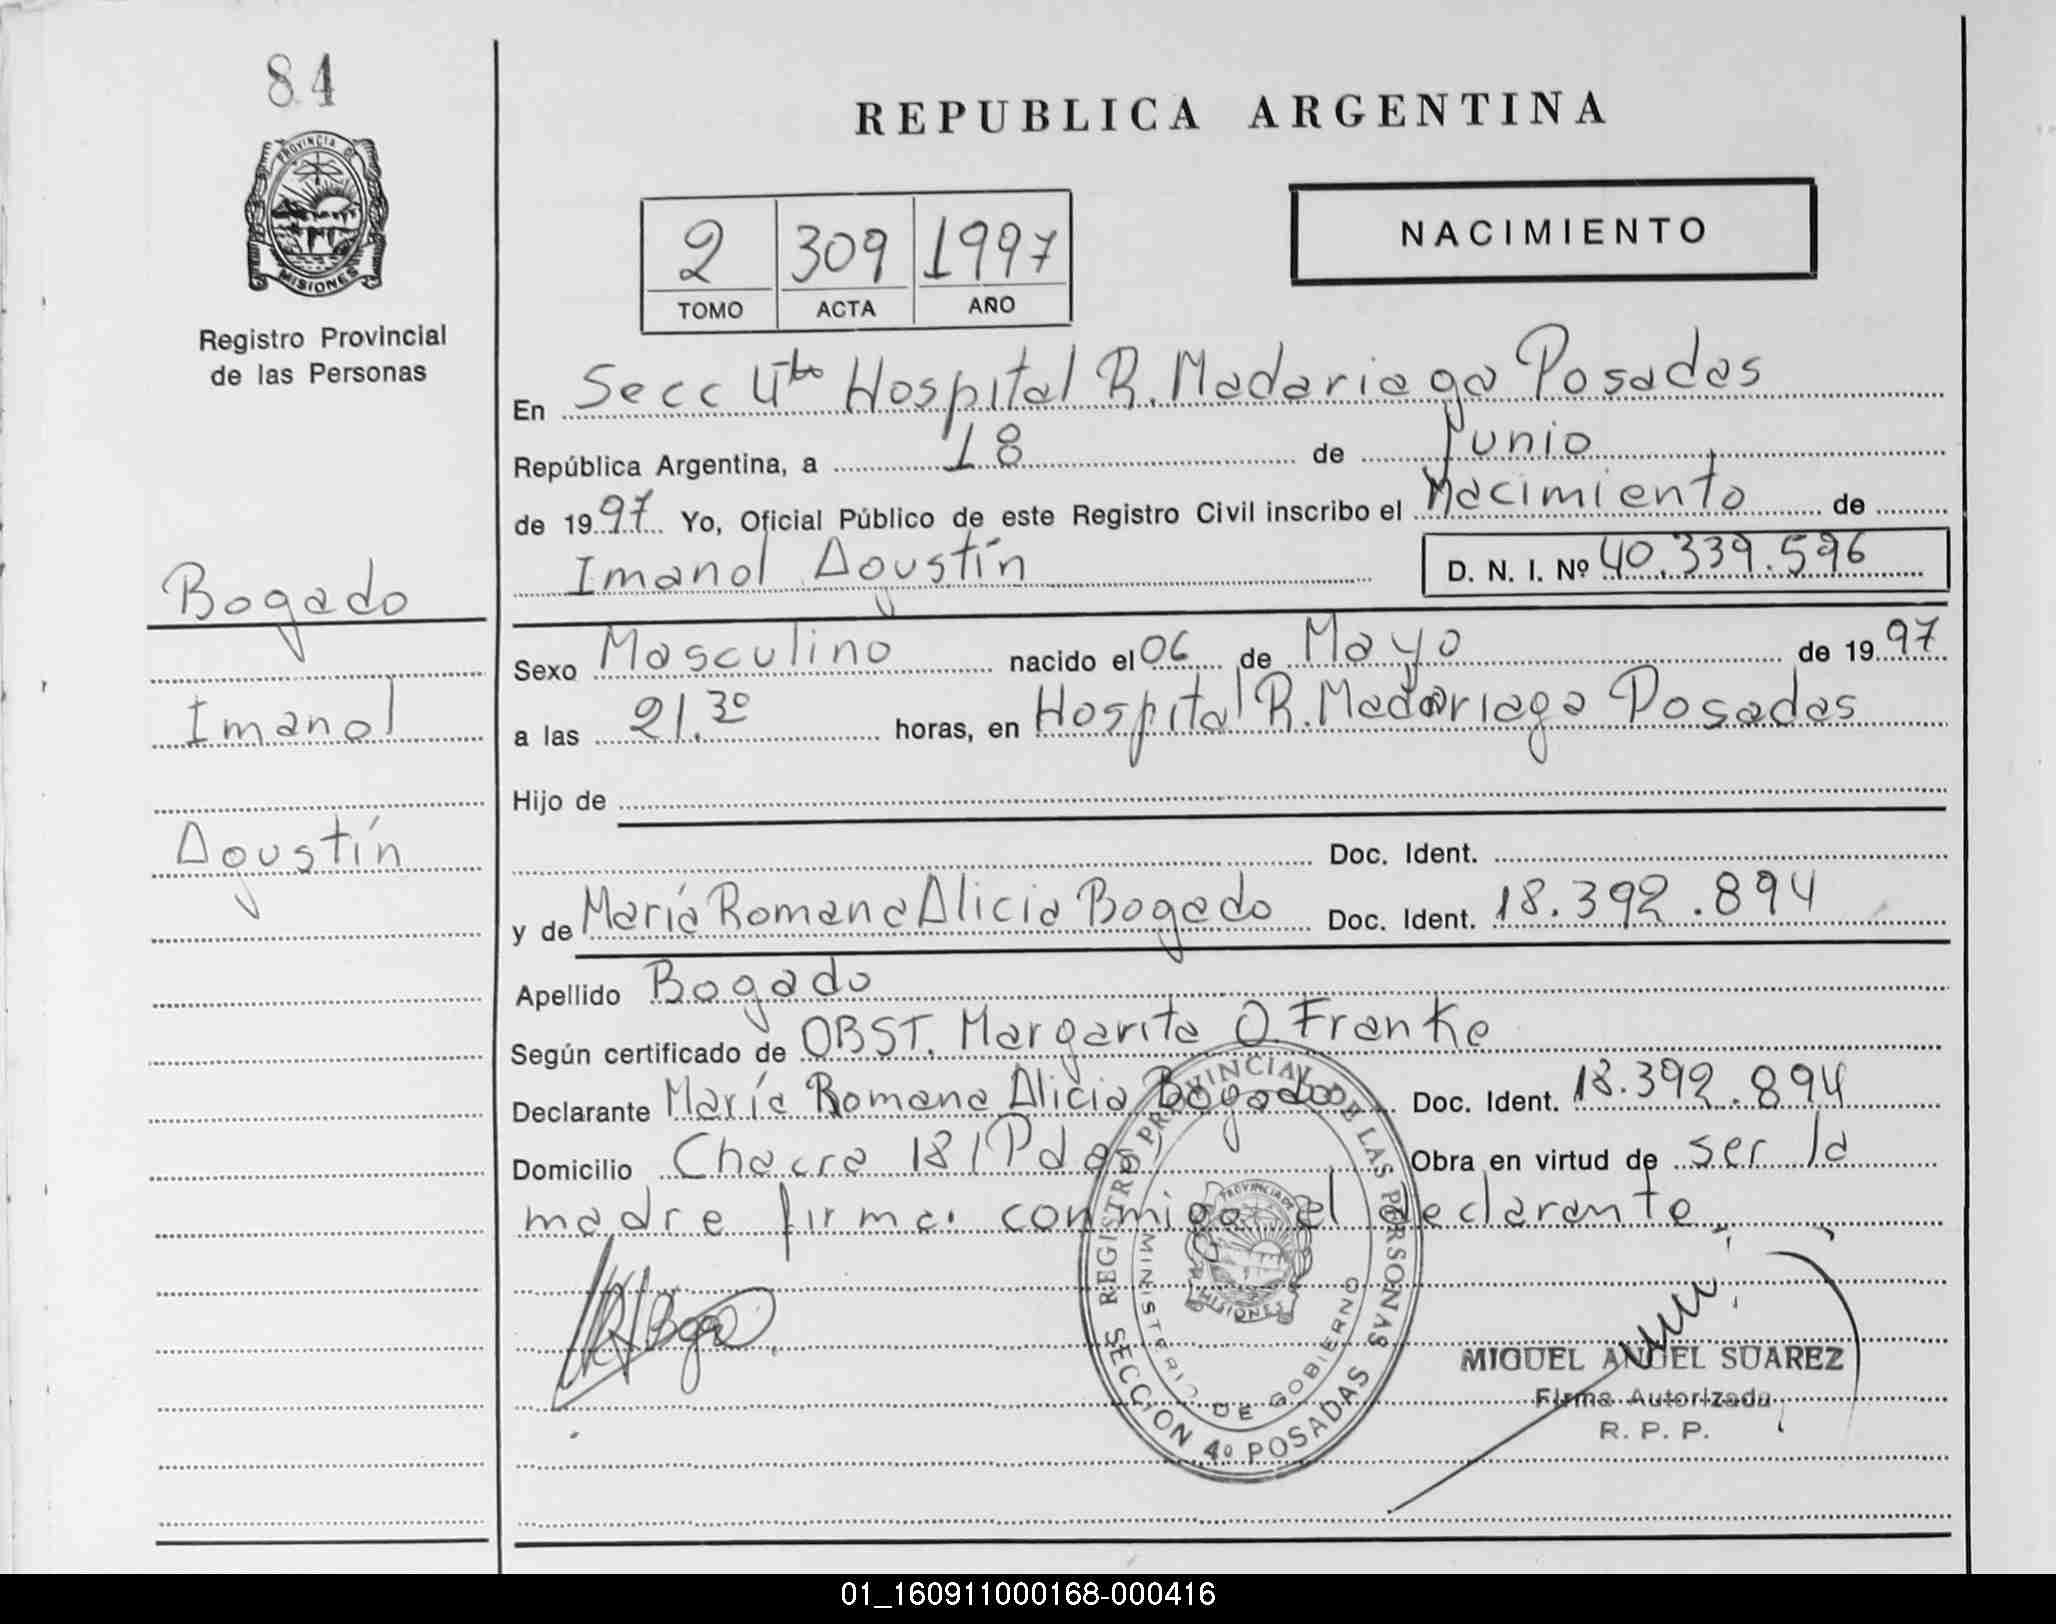 84
PROVINCIA DE
MISIONES
Registro Provincial
de las Personas
Bogado
Imanol
Agustín
REPUBLICA ARGENTINA
2 309 1997
TOMO ACTA AÑO
NACIMIENTO
En Secc 4ta Hospital R. Madariaga Posadas
República Argentina, a 18 de Junio
de 1997 Yo, Oficial Público de este Registro Civil inscribo el Nacimiento de
Imanol Agustín D. N. I. Nº 40.339.596
Sexo Masculino nacido el 06 de Mayo de 1997
a las 21.30 horas, en Hospital R. Madariaga Posadas
Hijo de
Doc. Ident.
y de María Romana Alicia Bogado Doc. Ident. 18.392.894
Apellido Bogado
Según certificado de OBST. Margarita O. Franke
Declarante María Romana Alicia Bogado Doc. Ident. 18.392.894
Domicilio Chacra 181 Pdas Obra en virtud de ser la
madre firma conmigo el declarante
REGISTRO PROVINCIAL DE LAS PERSONAS
MINISTERIO DE GOBIERNO
PROVINCIA DE
MISIONES
SECCION 4º POSADAS
MIGUEL ANGEL SUAREZ
Firma Autorizada
R. P. P.
01_160911000168-000416